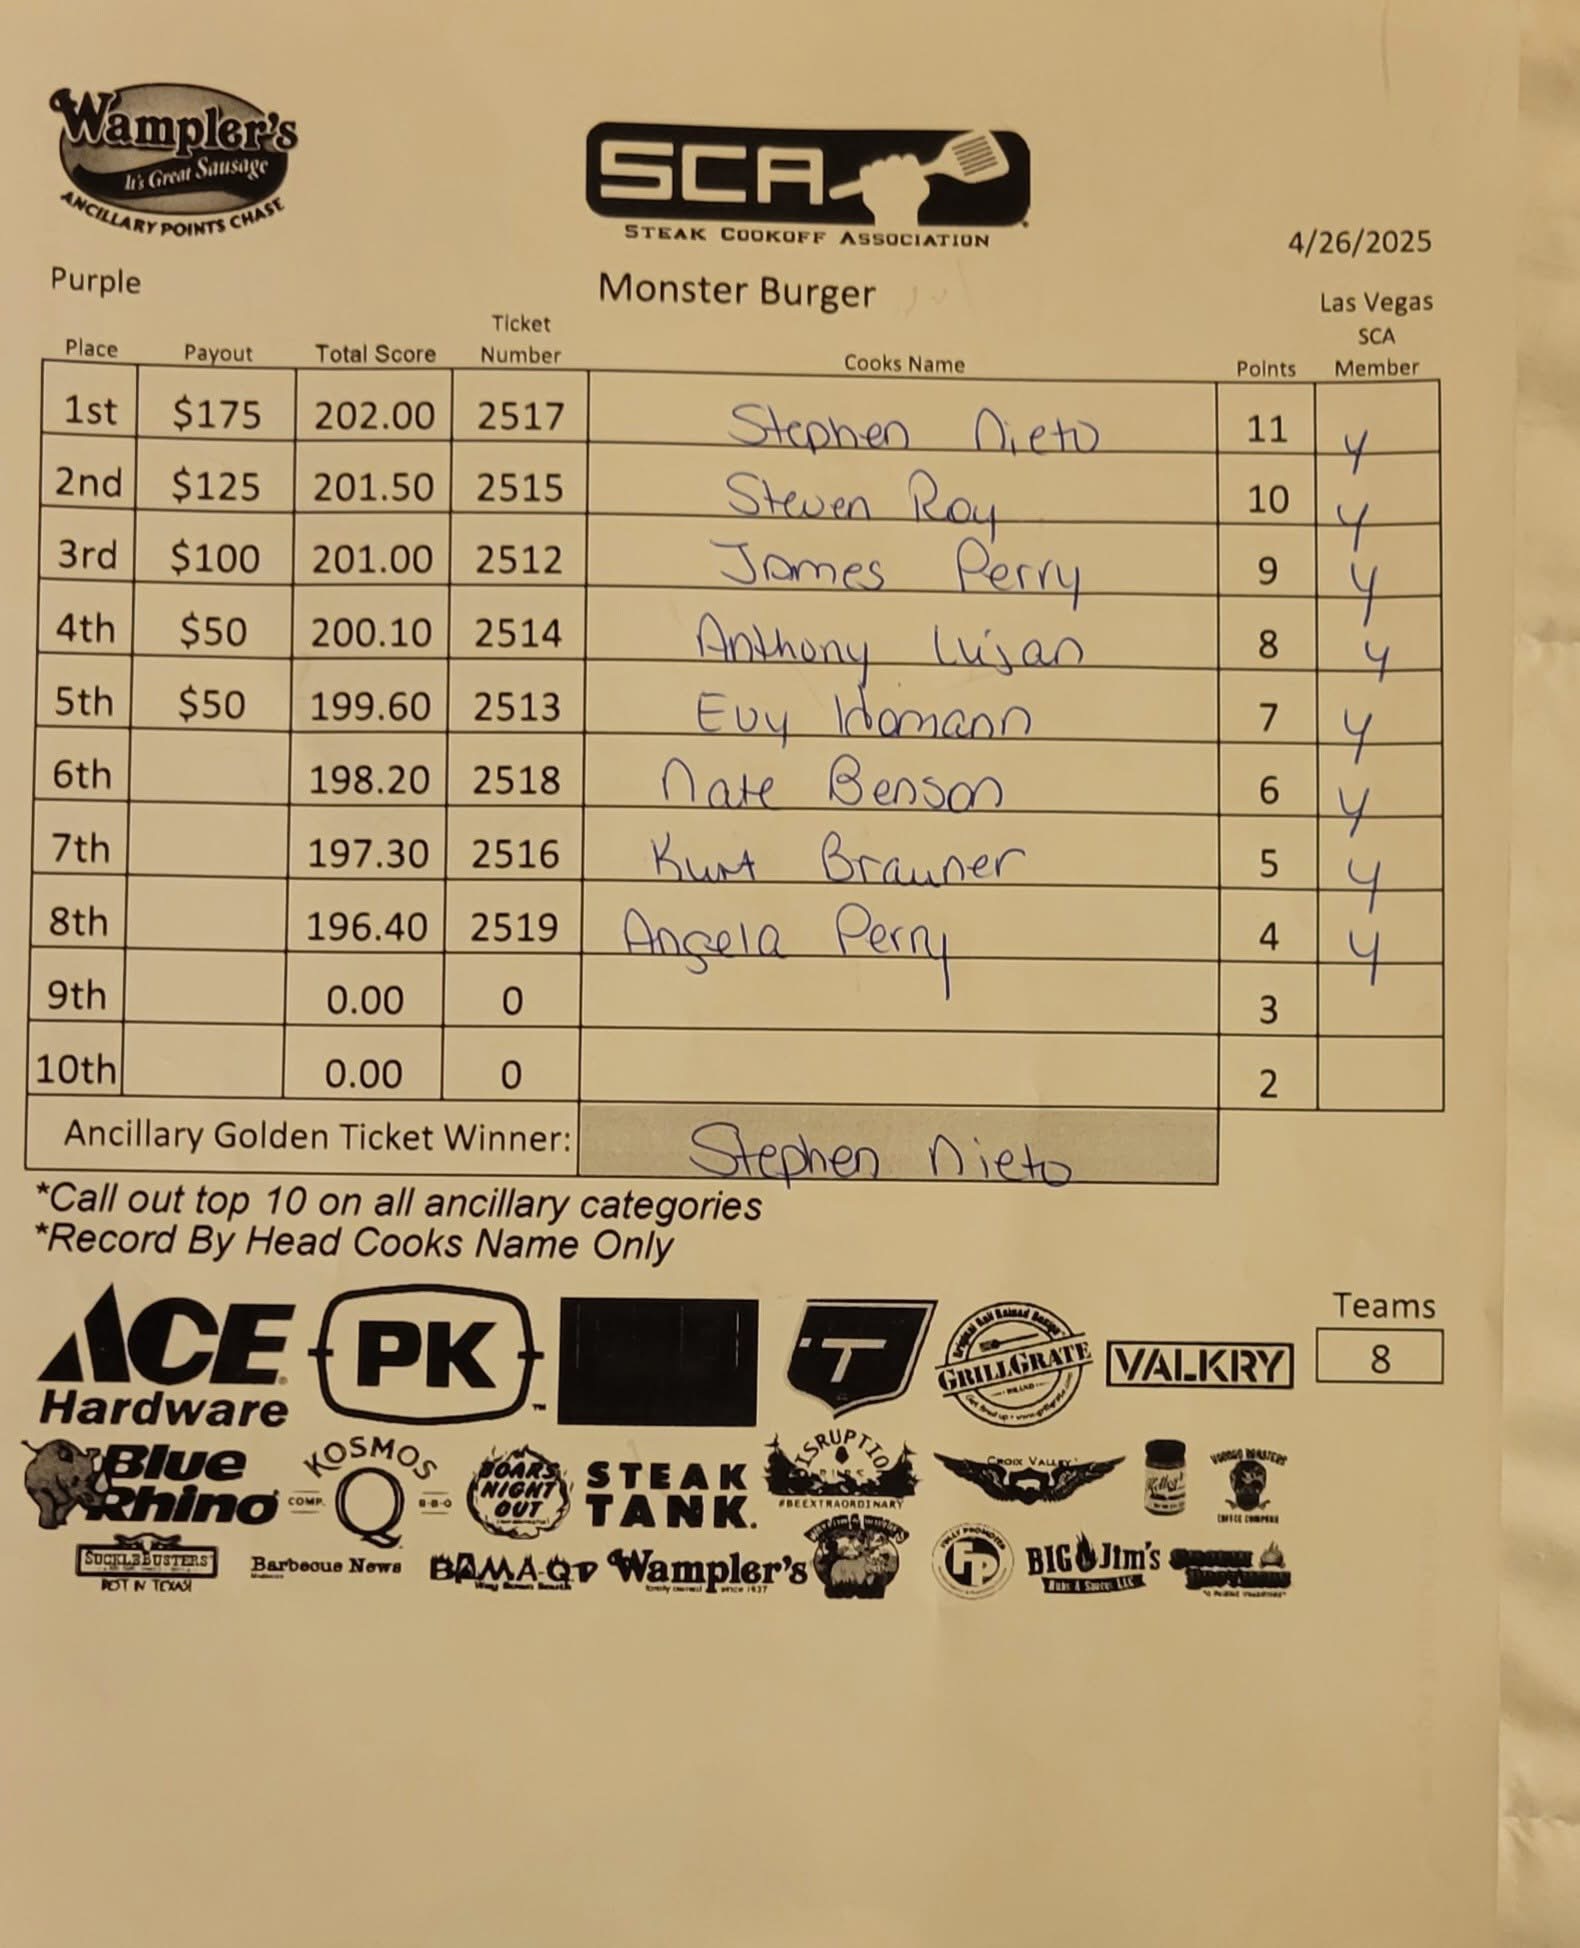 Wampler's
It's Great Sausage
ANCILLARY POINTS CHASE
SCA
STEAK COOKOFF ASSOCIATION
4/26/2025
Purple
Monster Burger
Las Vegas
Place Payout Total Score Ticket Number Cooks Name Points SCA Member
1st $175 202.00 2517 Stephen Nieto 11 y
2nd $125 201.50 2515 Steven Roy 10 y
3rd $100 201.00 2512 James Perry 9 y
4th $50 200.10 2514 Anthony Lujan 8 y
5th $50 199.60 2513 Evy Homann 7 y
6th 198.20 2518 Nate Benson 6 y
7th 197.30 2516 Kurt Brauner 5 y
8th 196.40 2519 Angela Perry 4 y
9th 0.00 0 3
10th 0.00 0 2
Ancillary Golden Ticket Winner: Stephen Nieto
*Call out top 10 on all ancillary categories
*Record By Head Cooks Name Only
Teams
8
ACE
Hardware
PK
TM
T
GRILLGRATE
VALKRY
Blue
Rhino
KOSMOS
COMP. Q B-B-Q
BOARS
NIGHT
OUT
STEAK
TANK.
#BEEXTRAORDINARY
CROIX VALLEY
COFFEE COMPANY
SUCKLEBUSTERS
HOT IN TEXAS!
Barbecue News
BAMA-Q TV
Way Down South
Wampler's
family owned since 1937
FULLY PROMOTED
FP
BIG Jim's
Rubs & Sauces LLC